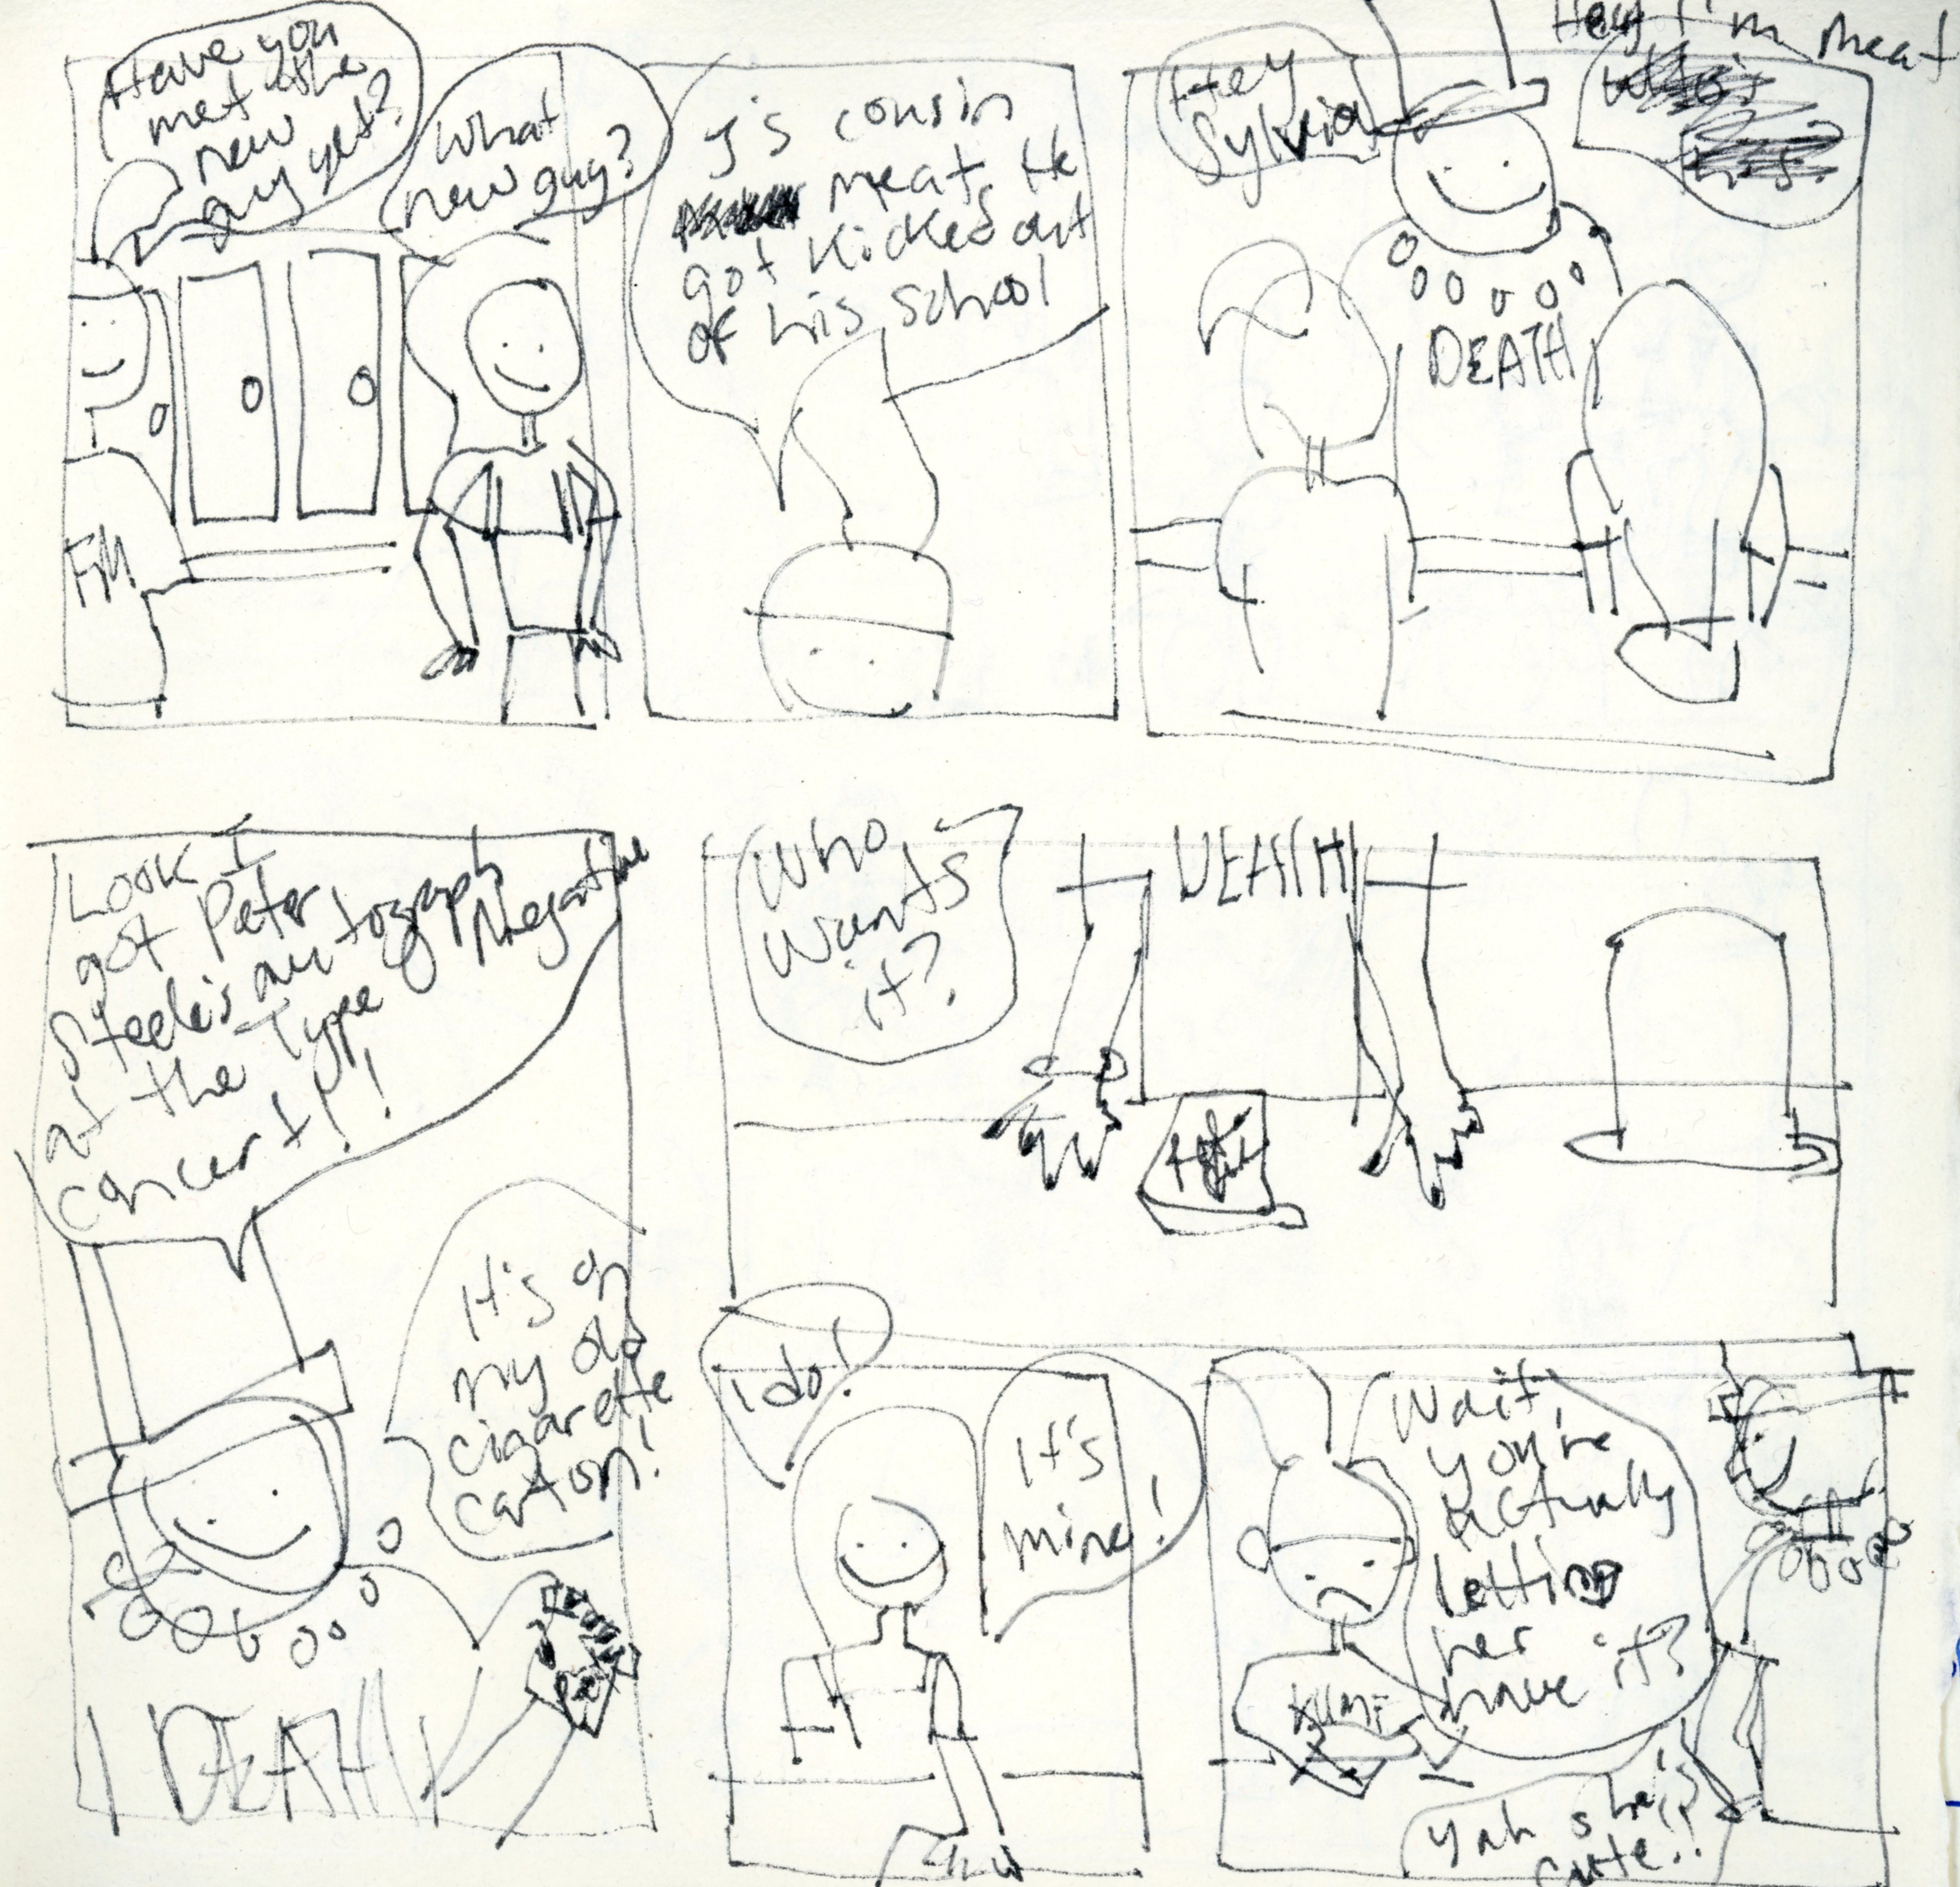 Have you
met the
new
guy yet?
What
new guy?
FM
J's cousin
meat. He
got kicked out
of his school
Hey
Sylvia
Hey I'm meat
DEATH
Look I
got Peter
Steele's autograph
at the Type Negative
concert!!
It's on
my old
cigarette
carton!
DEATH
Who
wants
it?
DEATH
I do!
It's
mine!
Wait,
you're
actually
letting
her
have it?
KILLME
Yah she's
cute!!